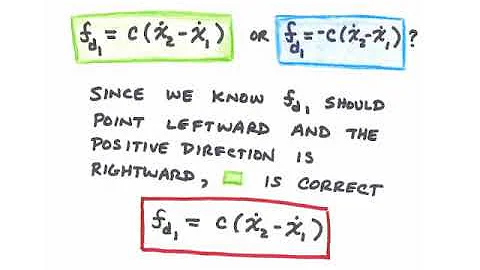 f_d₁ = c(ẋ₂-ẋ₁) OR f_d₁ = -c(ẋ₂-ẋ₁)?
SINCE WE KNOW f_d₁ SHOULD
POINT LEFTWARD AND THE
POSITIVE DIRECTION IS
RIGHTWARD, IS CORRECT
f_d₁ = c(ẋ₂-ẋ₁)